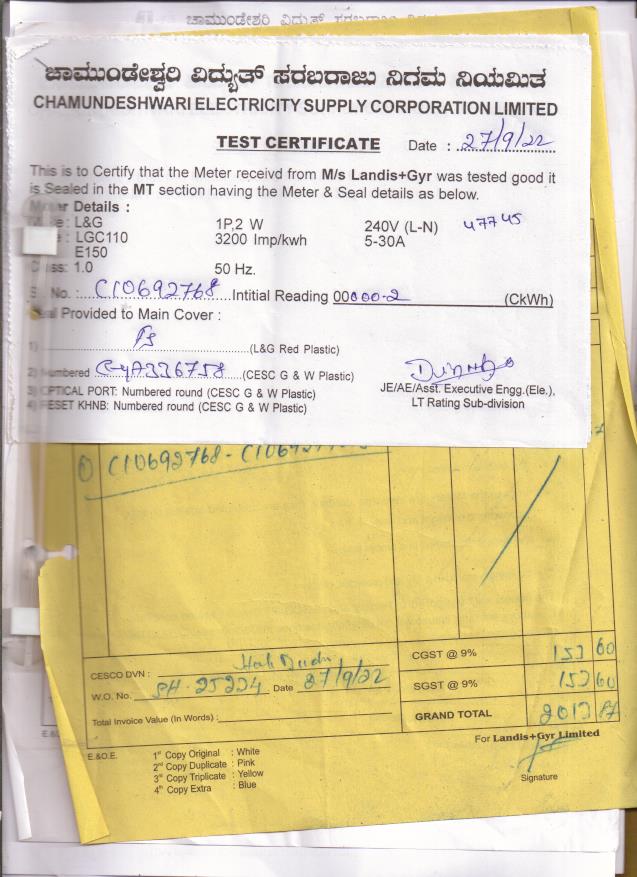 ಚಾಮುಂಡೇಶ್ವರಿ ವಿದ್ಯುತ್ ಸರಬರಾಜು ನಿಗಮ ನಿಯಮಿತ
CHAMUNDESHWARI ELECTRICITY SUPPLY CORPORATION LIMITED
TEST CERTIFICATE Date : 27/9/22
This is to Certify that the Meter receivd from M/s Landis+Gyr was tested good it
is Sealed in the MT section having the Meter & Seal details as below.
Details :
: L&G 1P,2 W 240V (L-N) 47745
: LGC110 3200 Imp/kwh 5-30A
E150
Class: 1.0 50 Hz.
No. : C10692768 Intitial Reading 00000-2 (CkWh)
Provided to Main Cover :
1) (L&G Red Plastic)
2) Numbered (CESC G & W Plastic)
3) OPTICAL PORT: Numbered round (CESC G & W Plastic)
4) RESET KHNB: Numbered round (CESC G & W Plastic)
JE/AE/Asst. Executive Engg.(Ele.),
LT Rating Sub-division
C10692768 -
CGST @ 9% 153 60
SGST @ 9% 153 60
GRAND TOTAL 2013
CESCO DVN :
W.O. No. SH-25224 Date 27/9/22
Total Invoice Value (In Words) :
For Landis+Gyr Limited
Signature
E.&O.E.
1st Copy Original : White
2nd Copy Duplicate : Pink
3rd Copy Triplicate : Yellow
4th Copy Extra : Blue